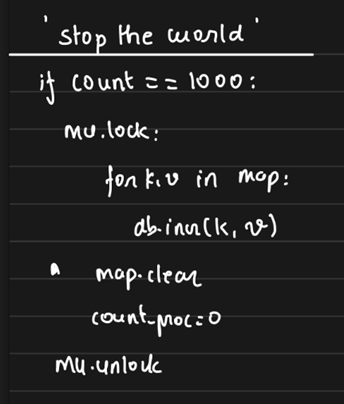 'stop the world'
if count == 1000:
mu.lock:
for k,v in map:
db.incr(k, v)
map.clear
count_proc=0
mu.unlock